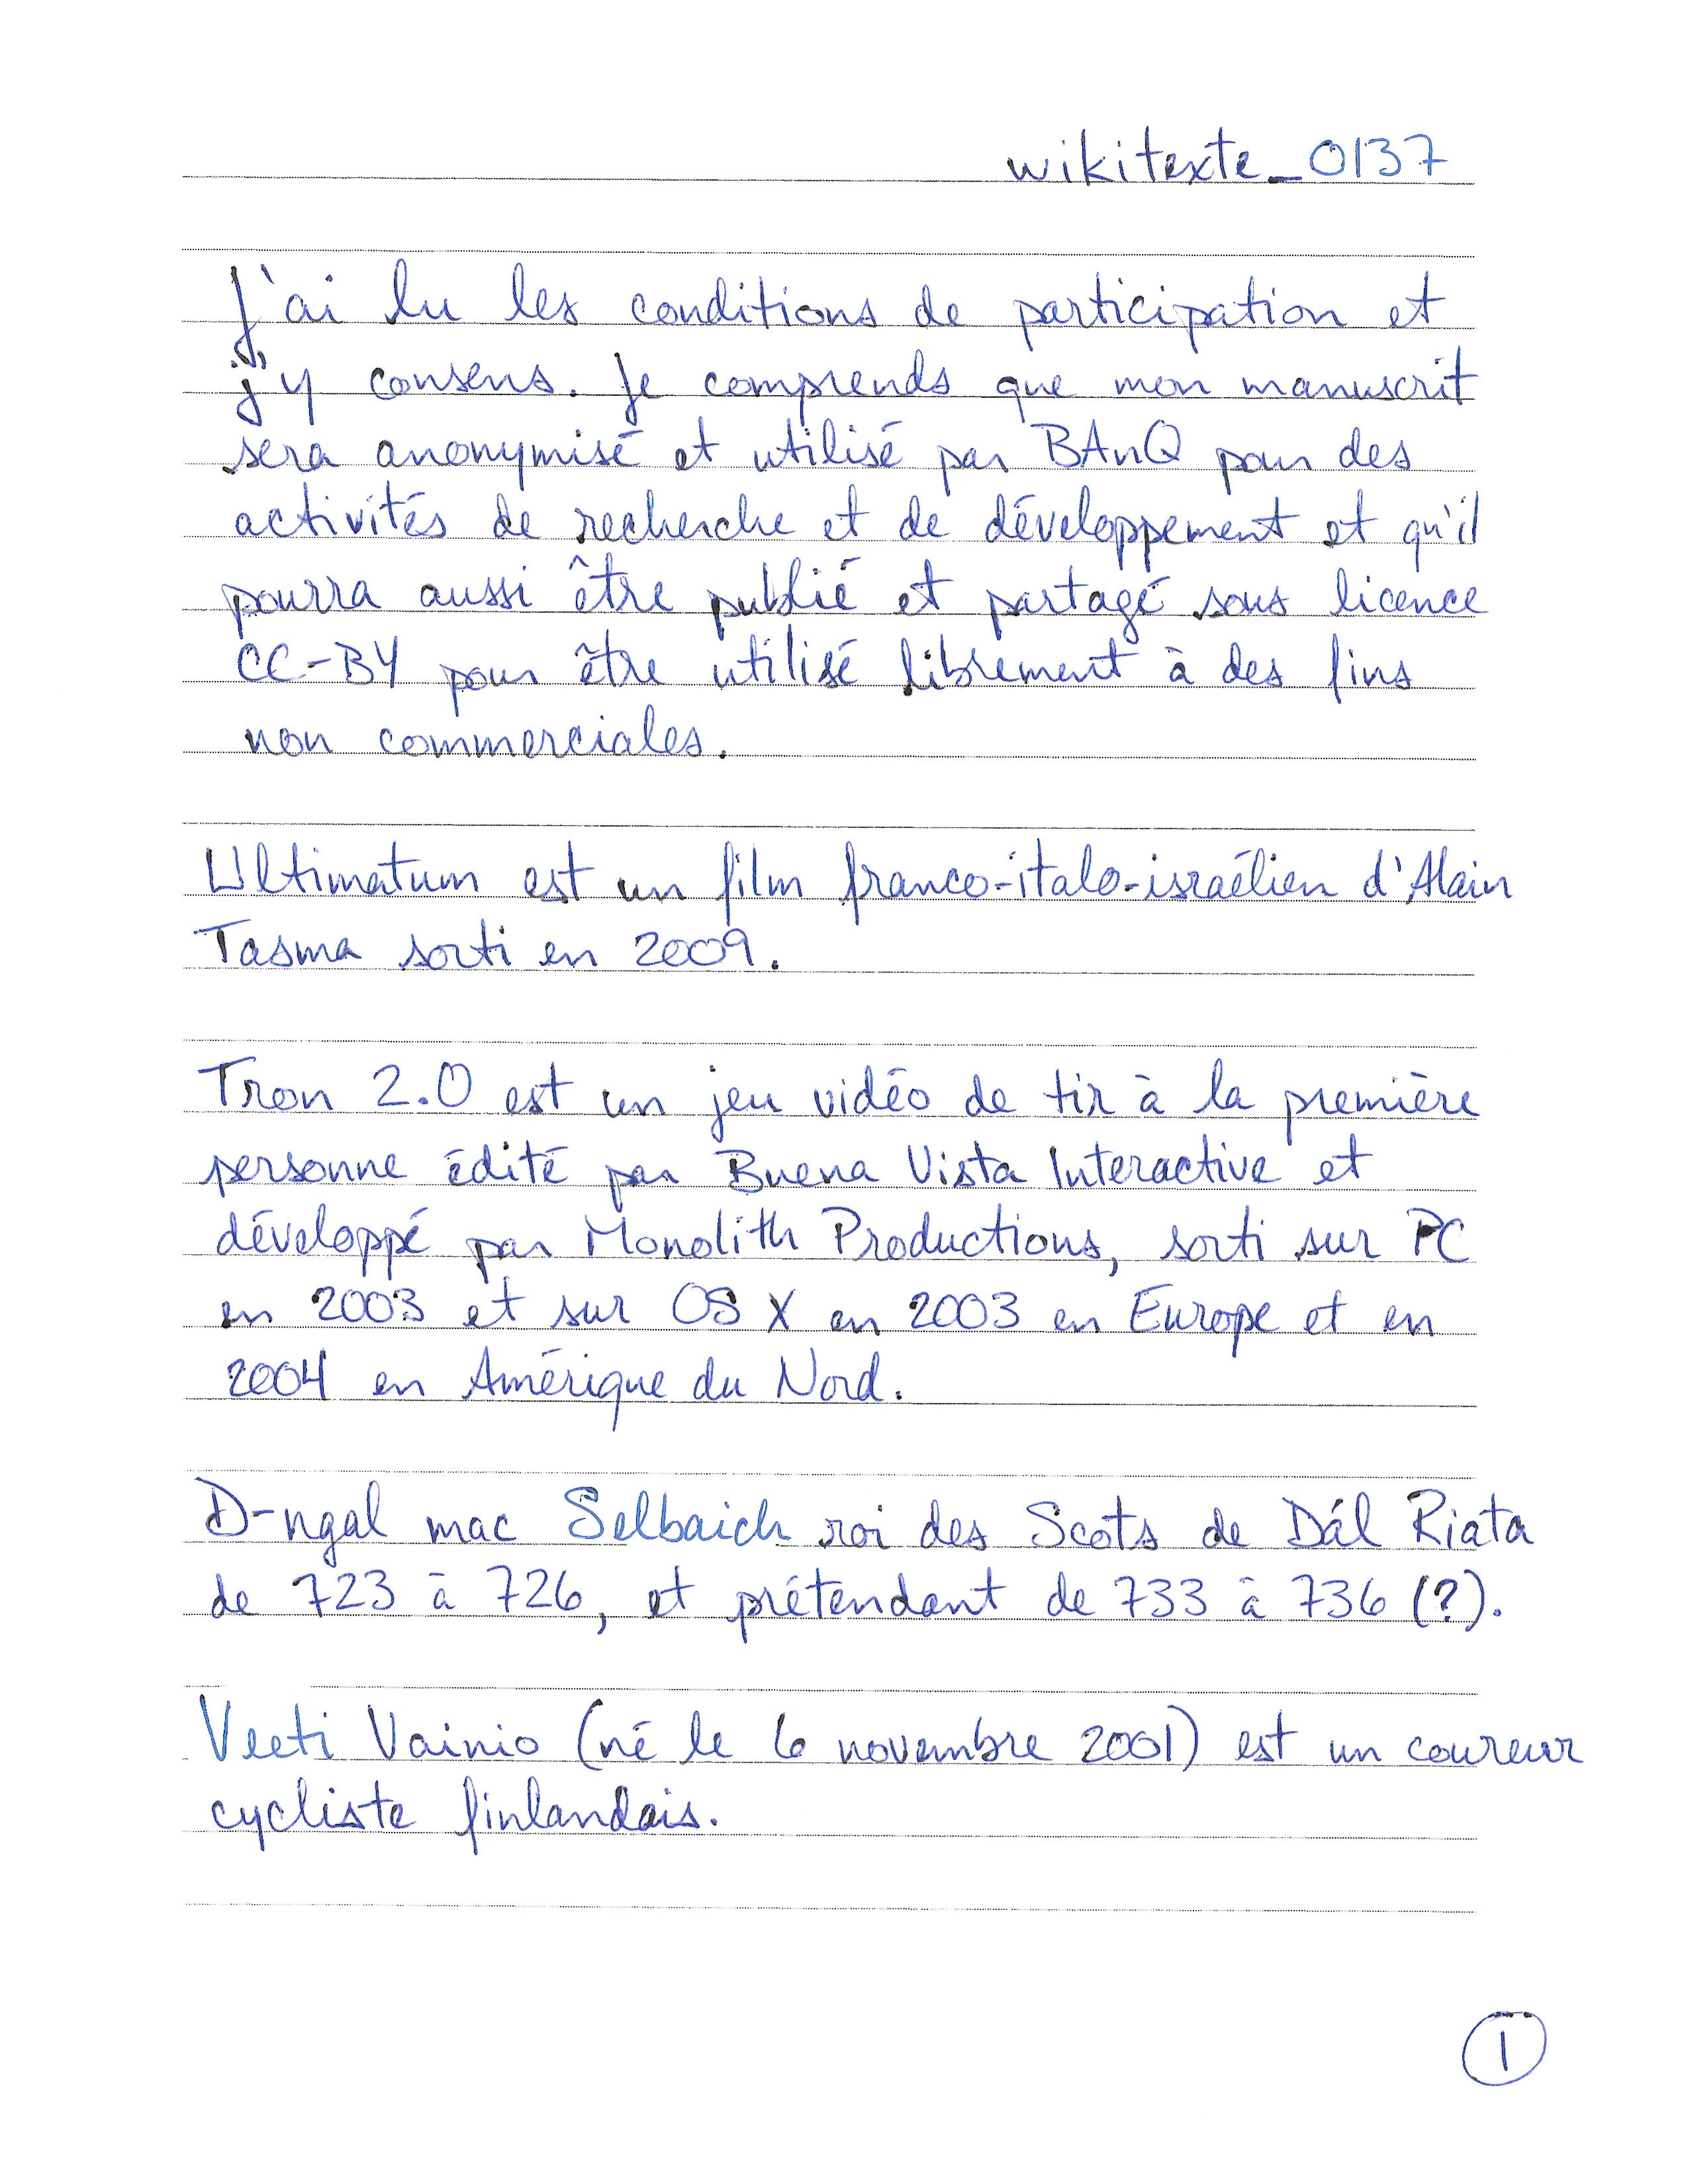 wikitexte_0137
J'ai lu les conditions de participation et
j'y consens. Je comprends que mon manuscrit
sera anonymisé et utilisé par BAnQ pour des
activités de recherche et de développement et qu'il
pourra aussi être publié et partagé sous licence
CC-BY pour être utilisé librement à des fins
non commerciales.
Ultimatum est un film franco-italo-israélien d'Alain
Tasma sorti en 2009.
Tron 2.0 est un jeu vidéo de tir à la première
personne édité par Buena Vista Interactive et
développé par Monolith Productions, sorti sur PC
en 2003 et sur OS X en 2003 en Europe et en
2004 en Amérique du Nord.
D-ngal mac Selbaich roi des Scots de Dál Riata
de 723 à 726, et prétendant de 733 à 736 (?).
Veeti Vainio (né le 6 novembre 2001) est un coureur
cycliste finlandais.
1